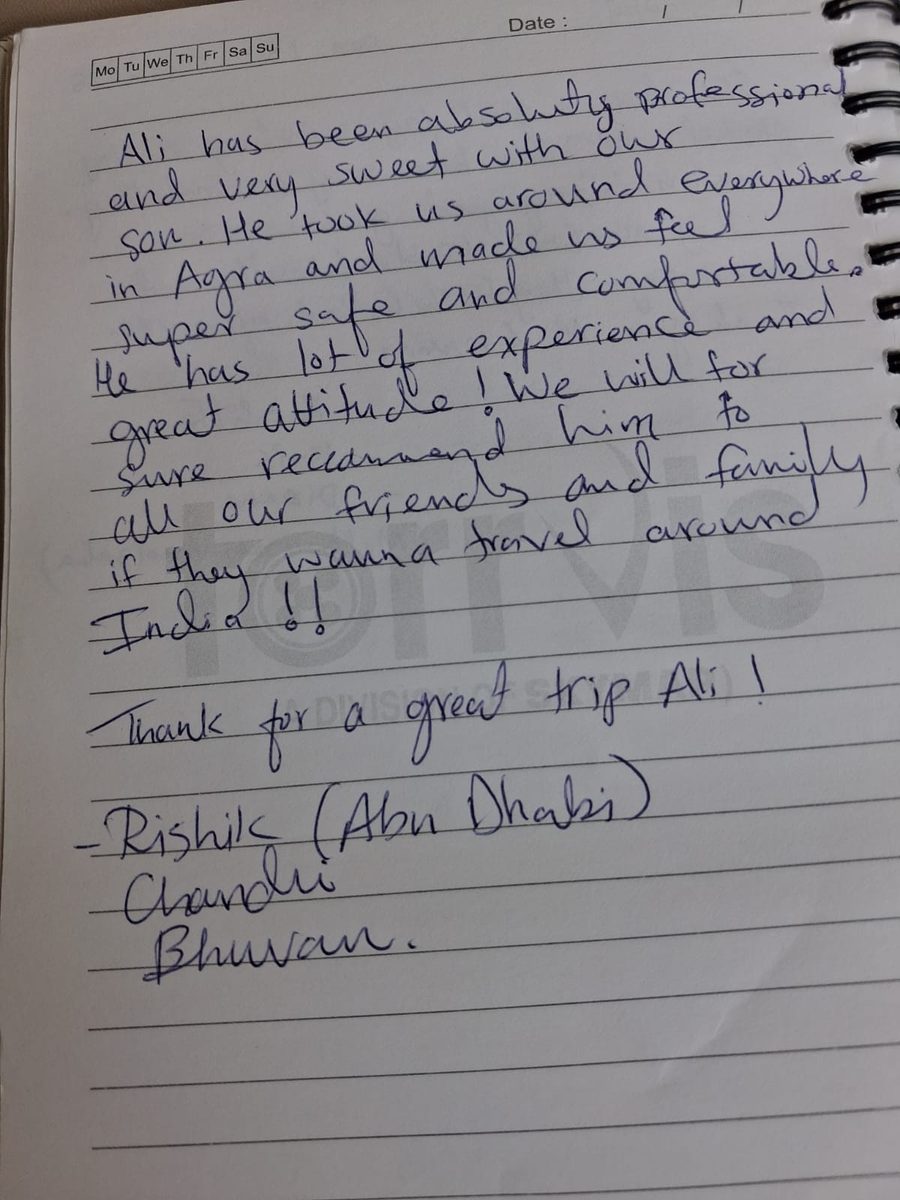 Date : / /
Mo Tu We Th Fr Sa Su
Ali has been absoluty professional
and very sweet with our
son. He took us around everywhere
in Agra and made us feel
super safe and comfortable.
He has lot of experience and
great attitude! We will for
sure reccommend him to
all our friends and family
if they wanna travel around
India!!
Thank for a great trip Ali!
- Rishik (Abu Dhabi)
Chandni
Bhuvan.
torrvis